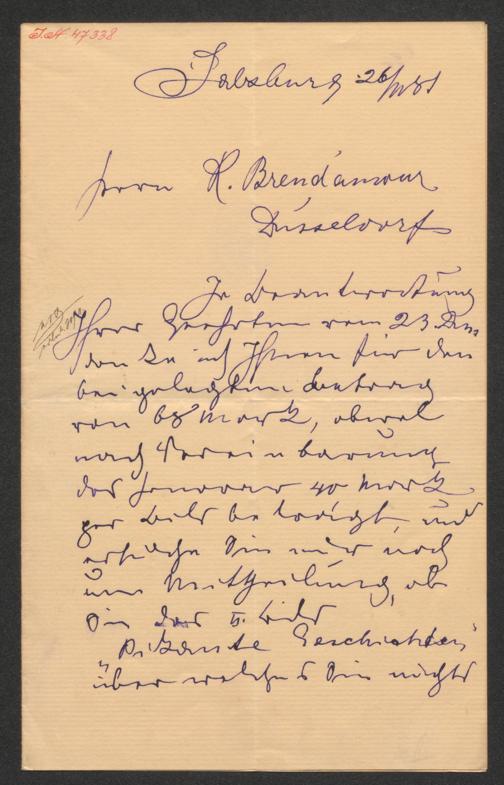 I.N. 47338
Salzburg 26/III 81
Herrn R. Brend'amour
Düsseldorf
In Beantwortung
Ihres Geehrten vom 23. Dss
danke ich Ihnen für den
beigelegten Betrag
von 68 Mark, obwol
nach Vereinbarung
das Honorar 40 Mark
per Bild beträgt, und
ersuche Sie mir noch
um Mittheilung, ob
Sie das II. Bild
"Pikante Geschichten"
über welches Sie nichts